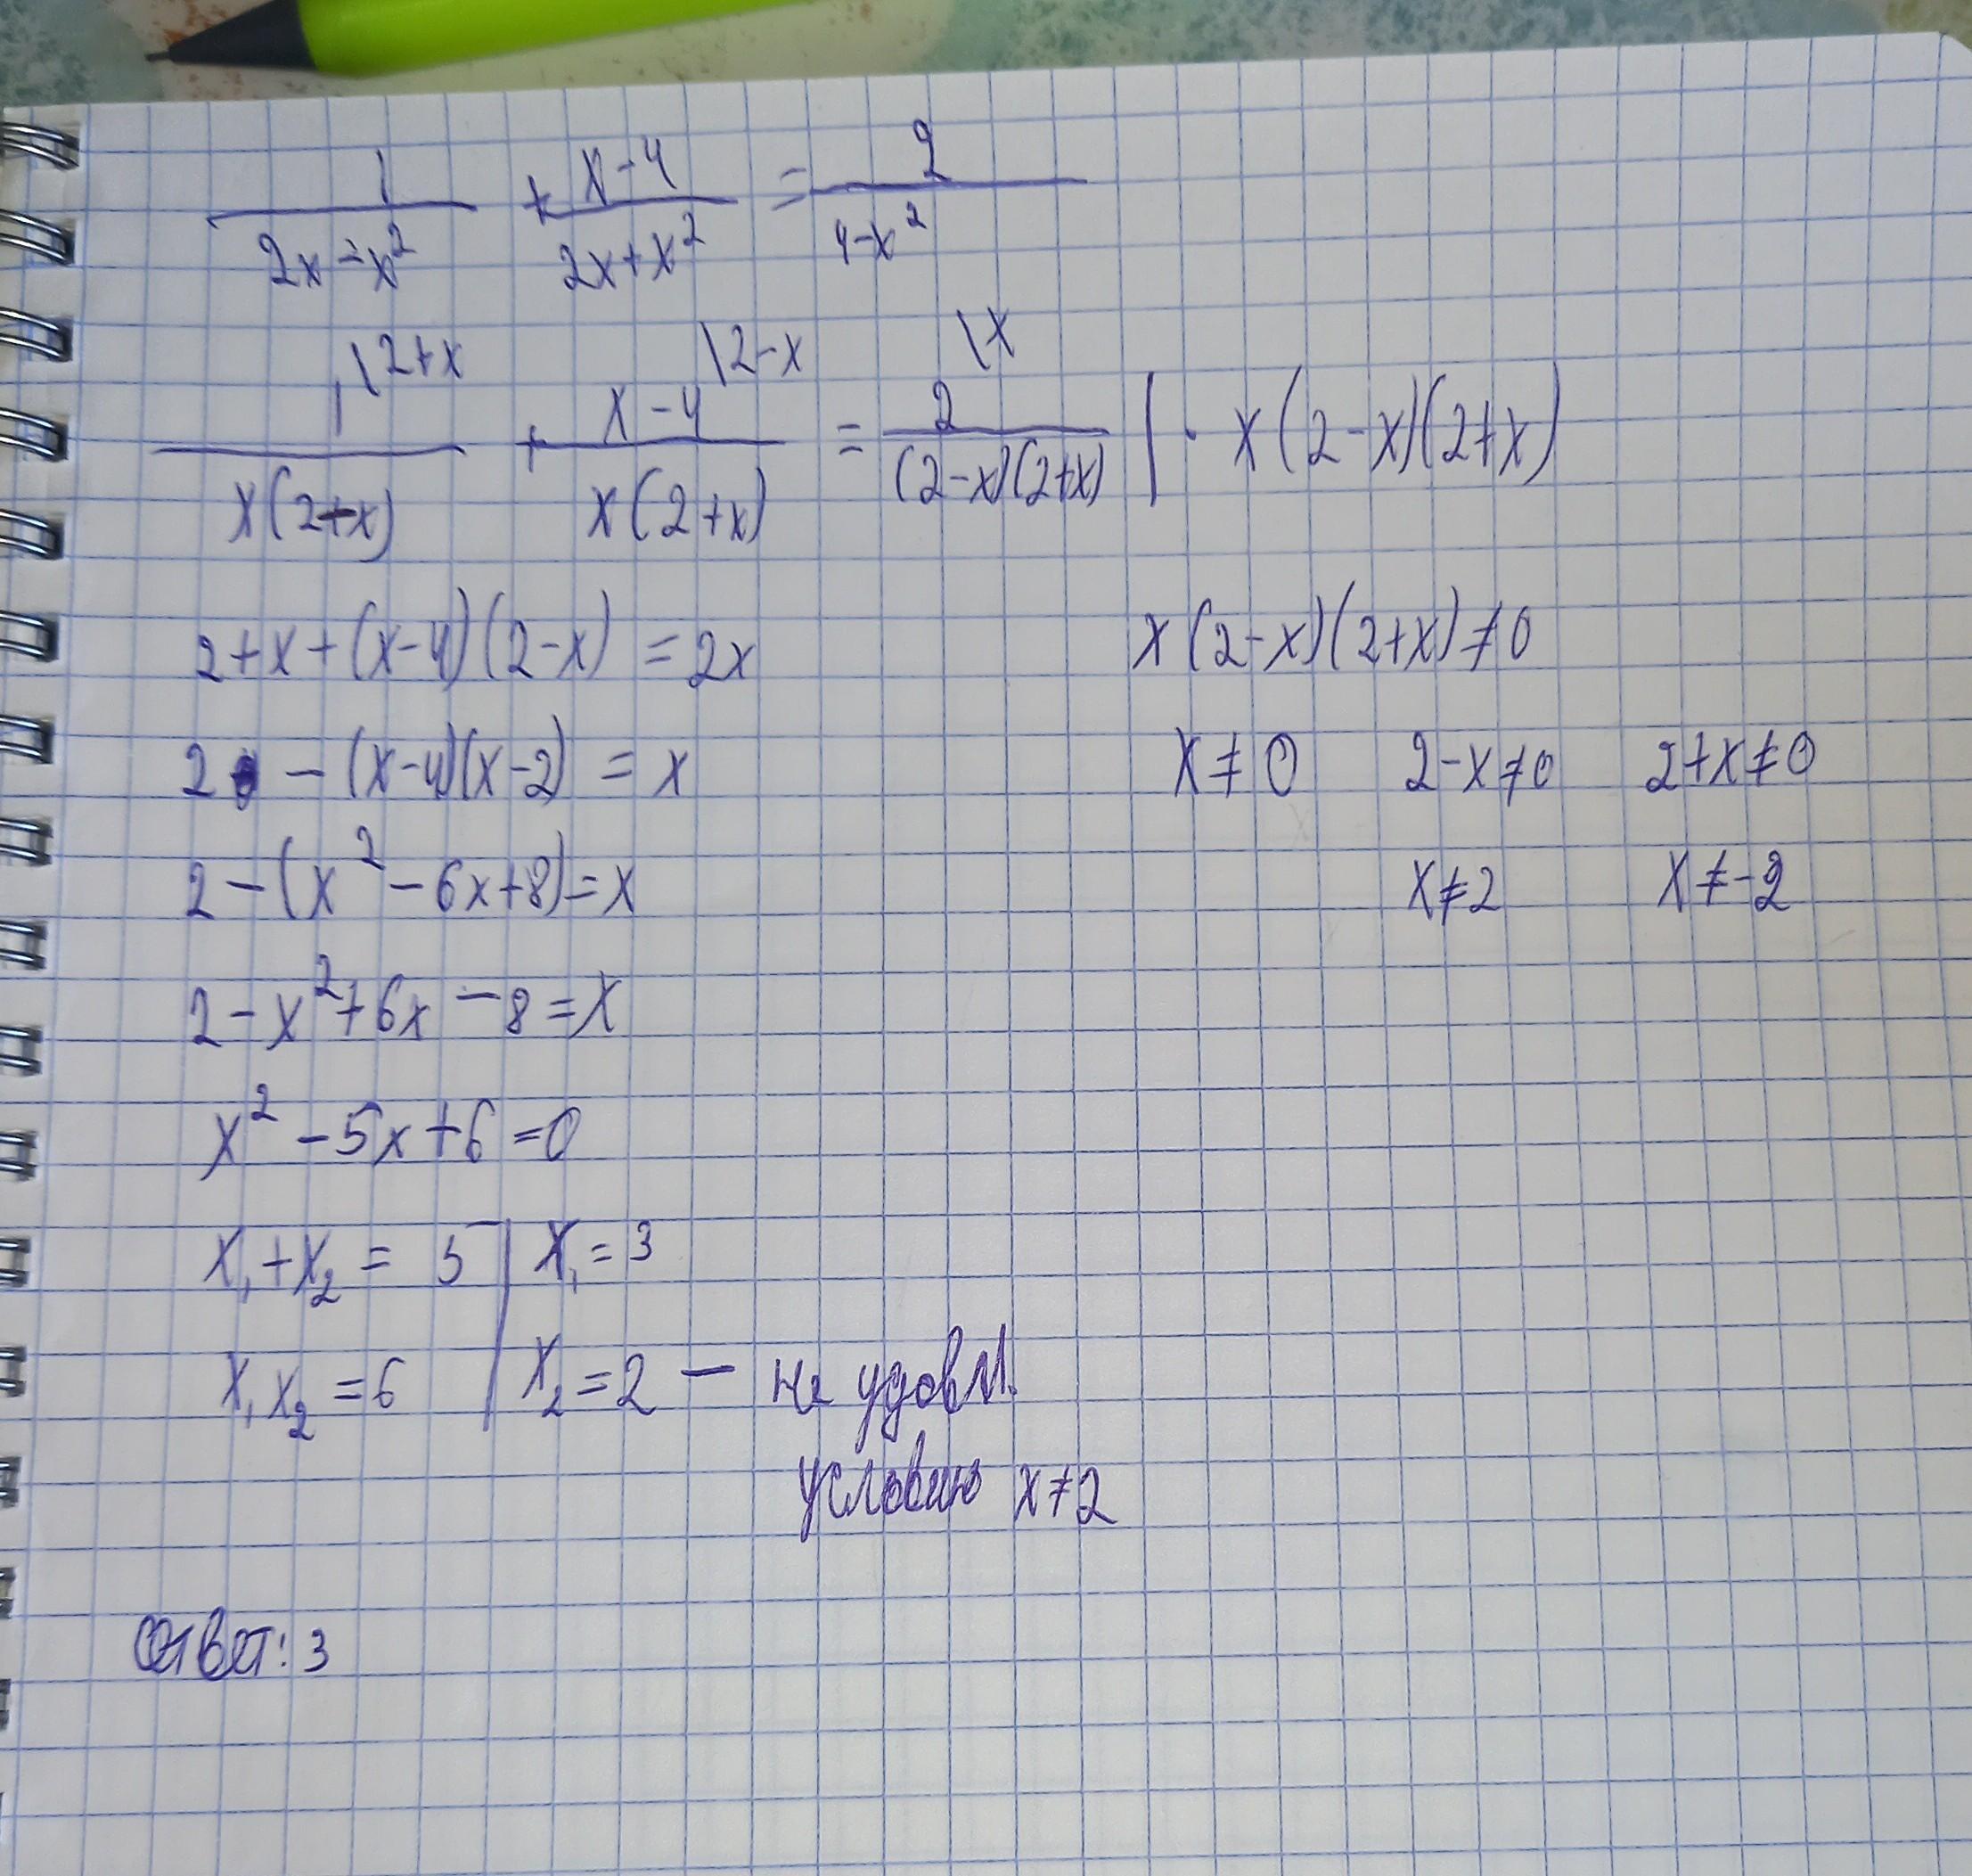 1/(2x-x²) + (x-4)/(2x+x²) = 2/(4-x²)
1\2+x/(x(2-x)) + x-4\2-x/(x(2+x)) = 2\x/((2-x)(2+x)) | · x(2-x)(2+x)
2+x+(x-4)(2-x) = 2x
x(2-x)(2+x)≠0
2 - (x-4)(x-2) = x
x≠0 2-x≠0 2+x≠0
2-(x²-6x+8)=x
x≠2 x≠-2
2-x²+6x-8=x
x²-5x+6=0
x₁+x₂ = 5 | x₁=3
x₁x₂=6 | x₂=2 - не удовл.
условию x≠2
Ответ: 3